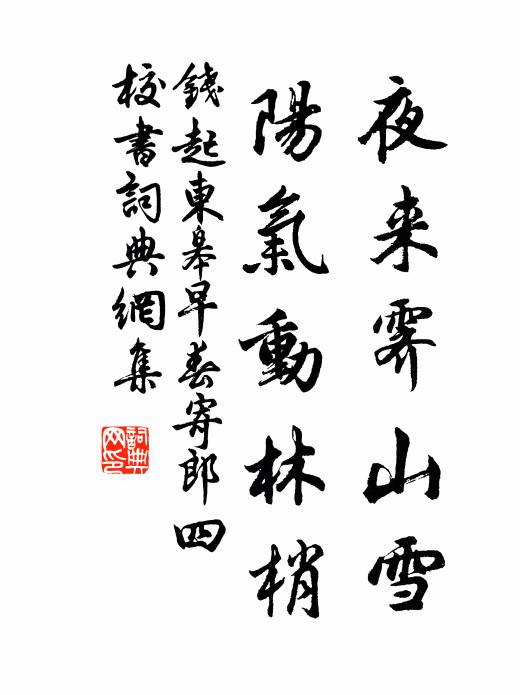 夜来霽山雪
陽氣動林梢
錢起東皋早春寄郎四
校書詞典網集
詞典网印